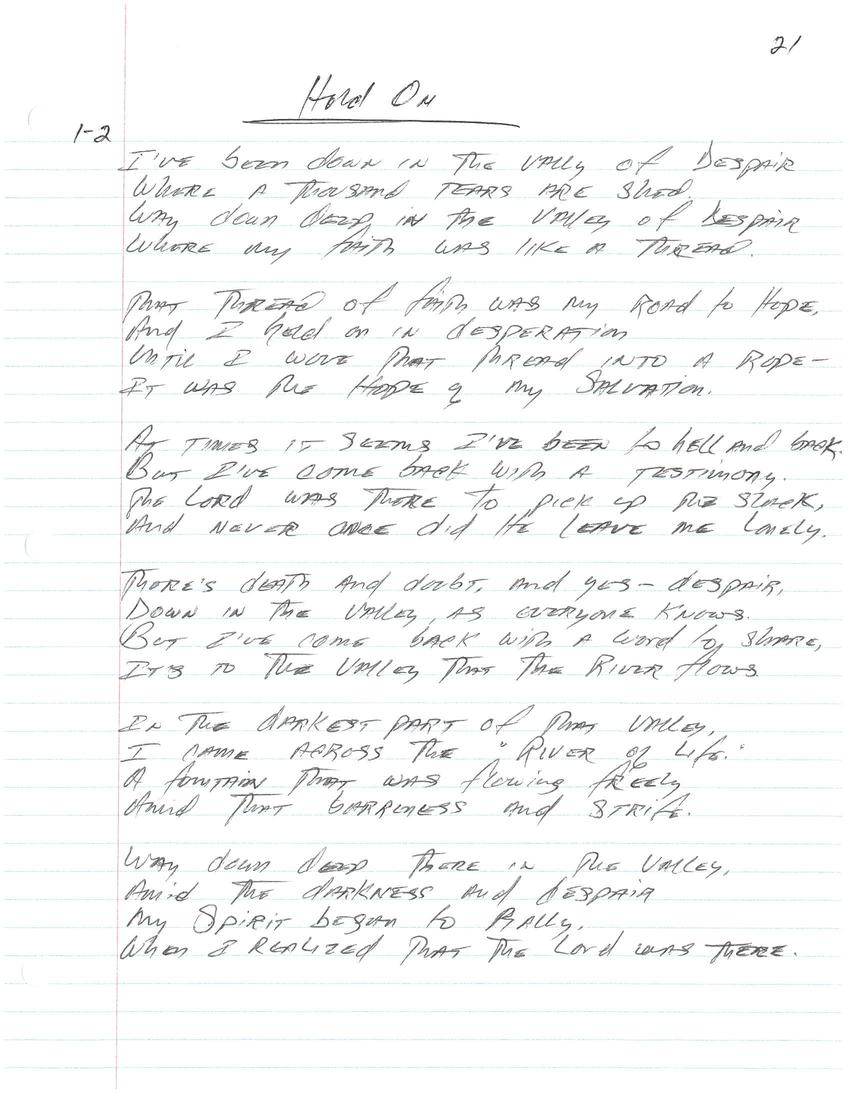 21
Hold On
1-2
I've been down in the vally of Despair
Where a thousand tears are shed,
Way down deep in the valley of Despair
Where my faith was like a thread.
That thread of faith was my road to Hope,
And I held on in desperation
Until I wove that thread into a rope—
It was the Hope of my Salvation.
At times it seems I've been to hell and back.
But I've come back with a testimony.
The Lord was there to pick up the slack,
And never once did He leave me lonely.
There's death and doubt, and yes— despair,
Down in the valley, as everyone knows.
But I've come back with a word to share,
It's to the valley that the river flows.
In the darkest part of that valley,
I came across the "River of Life."
A fountain that was flowing freely
Amid that barrness and strife.
Way down deep there in the valley,
Amid the darkness and despair
My Spirit began to rally,
When I realized that the Lord was there.